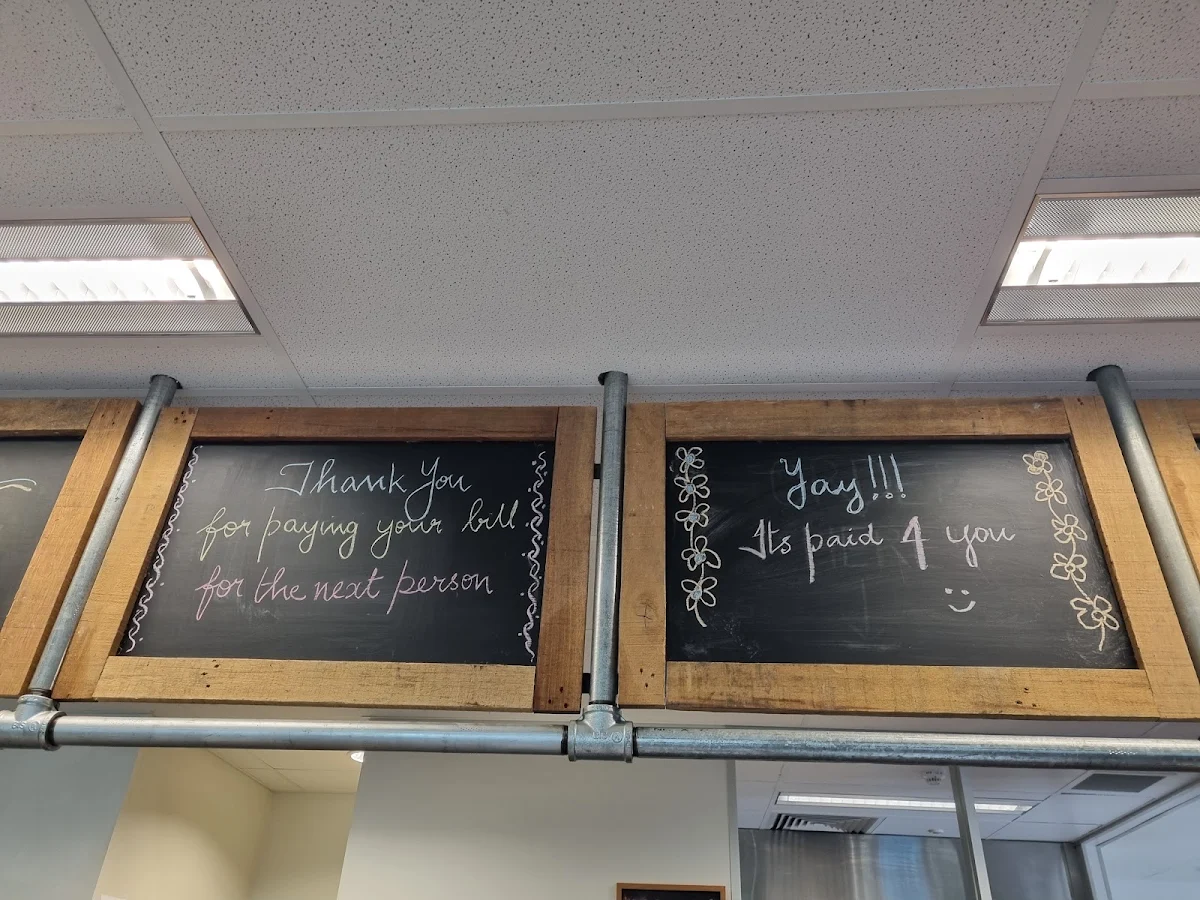 Thank You
for paying your bill
for the next person
Yay!!!
Its paid 4 you
:)